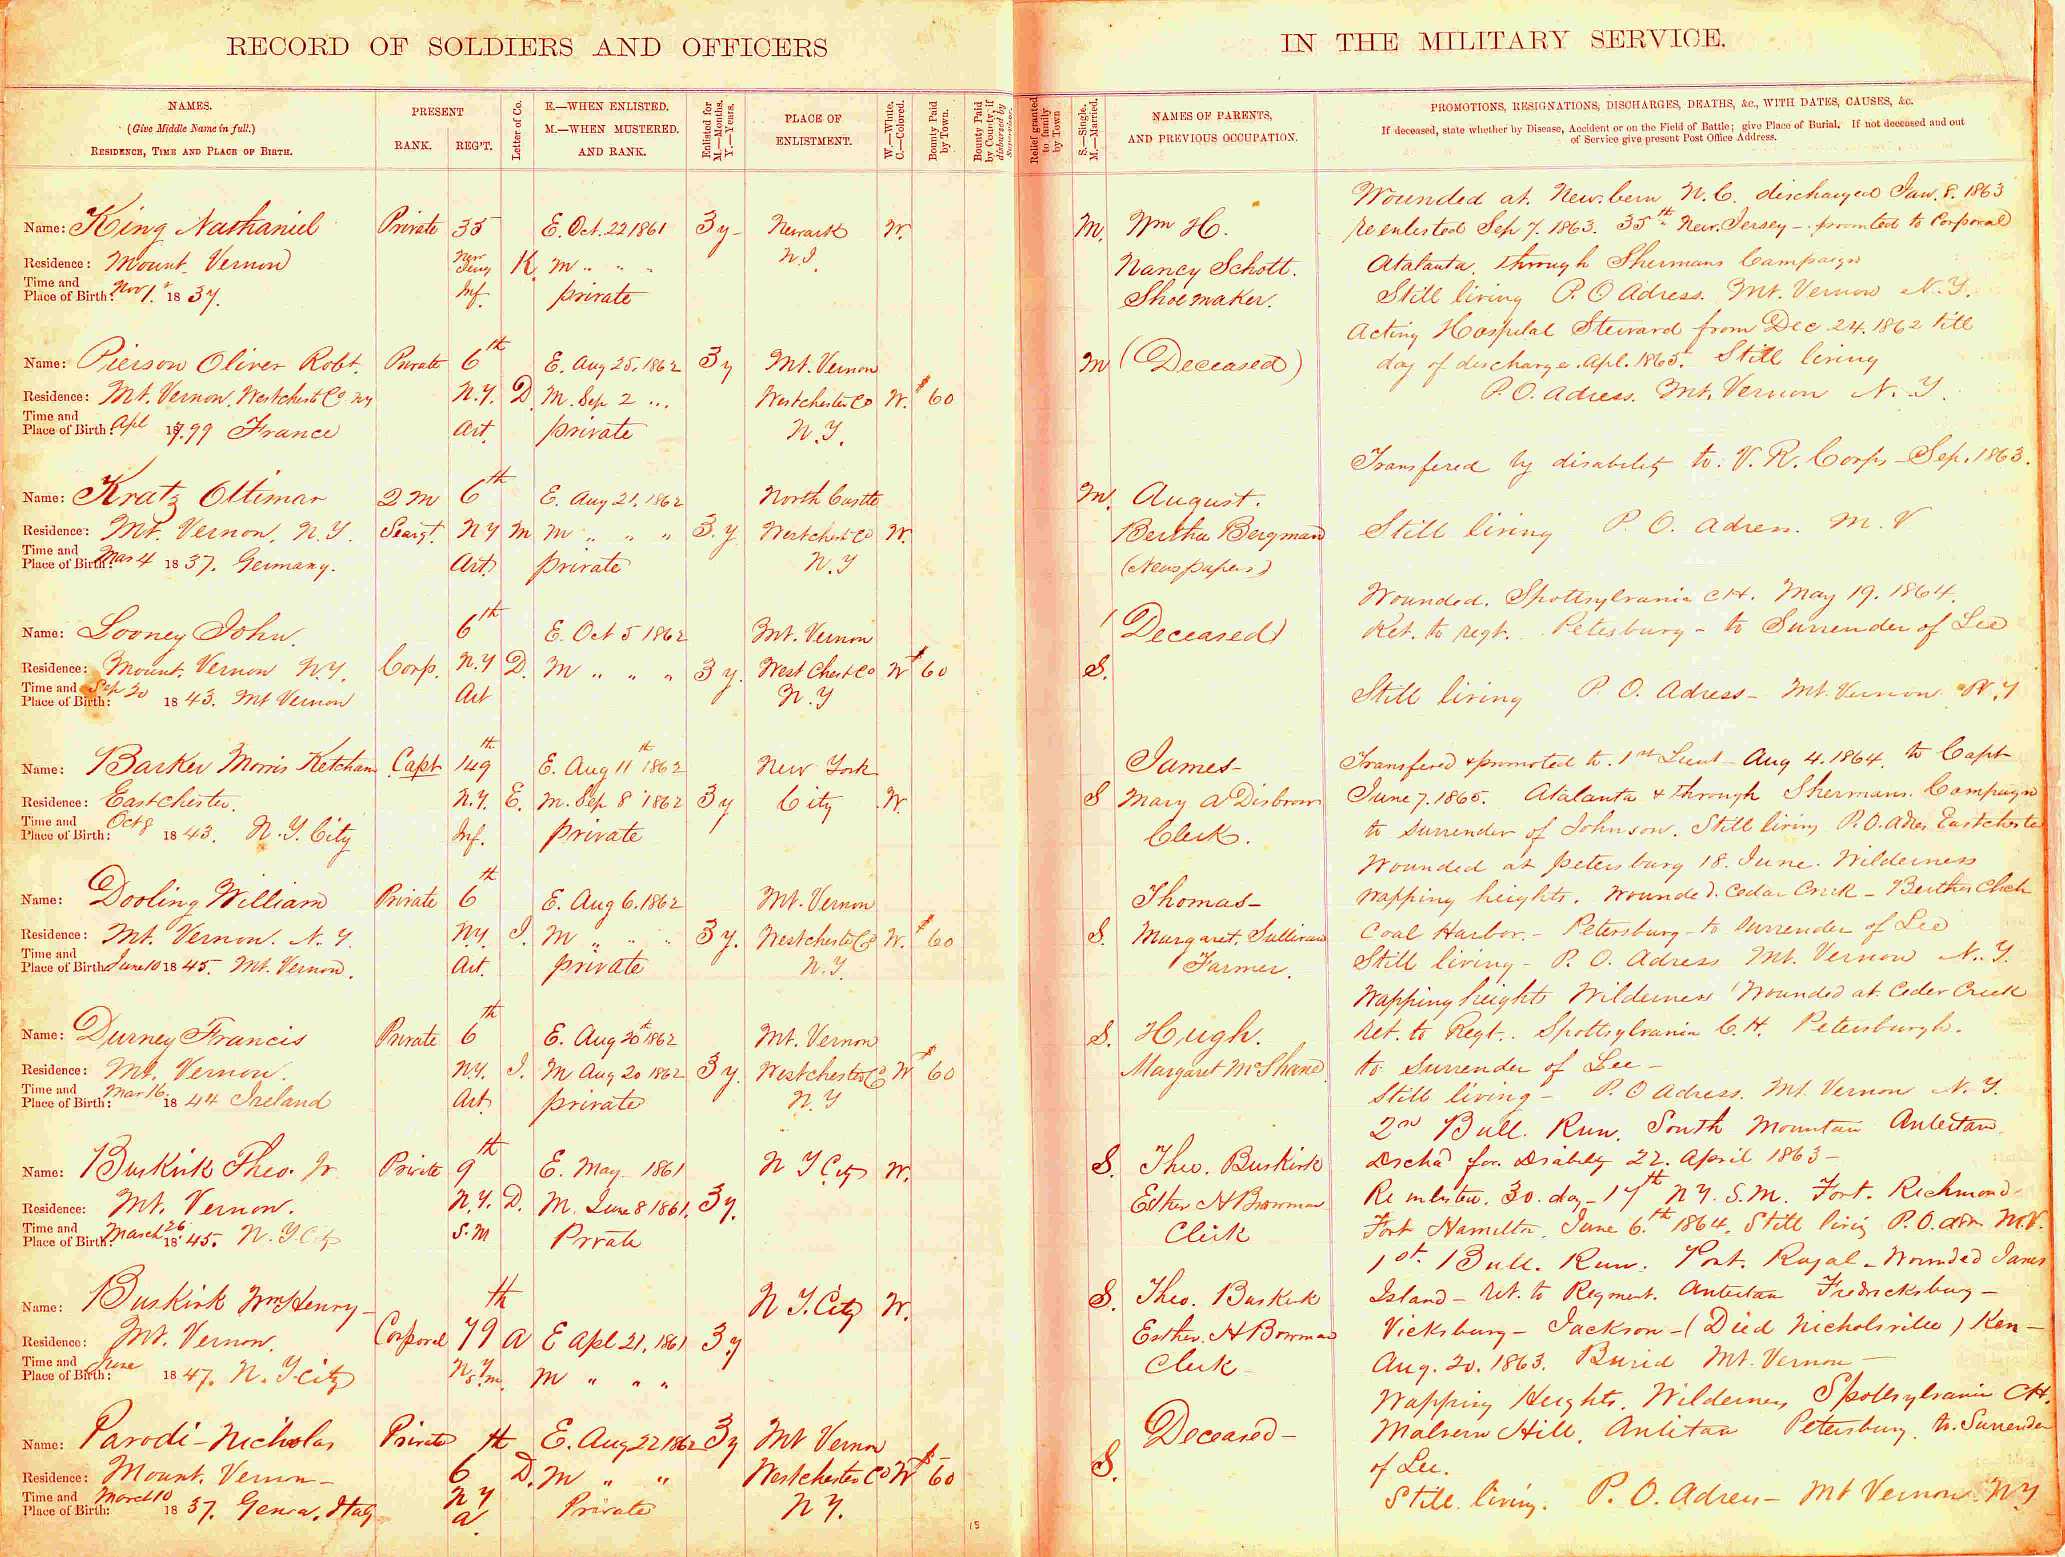 RECORD OF SOLDIERS AND OFFICERS
IN THE MILITARY SERVICE.
NAMES.
(Give Middle Name in full.)
RESIDENCE, TIME AND PLACE OF BIRTH.
PRESENT
RANK.
REG'T.
Letter of Co.
E.—WHEN ENLISTED.
M.—WHEN MUSTERED.
AND RANK.
Enlisted for
M.—Months.
Y.—Years.
PLACE OF
ENLISTMENT.
W.—White.
C.—Colored.
Bounty Paid
by Town.
Bounty Paid
by County, if
disbursed by
Supervisor.
Relief granted
to family
by Town
S.—Single.
M.—Married.
NAMES OF PARENTS,
AND PREVIOUS OCCUPATION.
PROMOTIONS, RESIGNATIONS, DISCHARGES, DEATHS, &c., WITH DATES, CAUSES, &c.
If deceased, state whether by Disease, Accident or on the Field of Battle; give Place of Burial. If not deceased and out
of Service give present Post Office Address.
Wounded at Newbern N.C. discharged Jan. 8. 1863
Name: King Nathaniel Private 35 E. Oct. 22 1861 3 y Newark W. M. Wm H. reenlisted Sep 7. 1863. 35th New Jersey - promoted to Corporal
Residence: Mount Vernon New Jersey K M " " " N.J. Nancy Schott. Atalanta. through Shermans Campaign
Time and
Place of Birth: Nov 1. 1837. Inf. private Shoemaker. Still living P. O Adress. Mt. Vernon N.Y.
Acting Hospital Steward from Dec 24. 1862 till
Name: Pierson Oliver Robt. Private 6th E. Aug 25, 1862 3 y Mt. Vernon M (Deceased) day of discharge. Apl. 1865. Still living
Residence: Mt. Vernon. Westchester Co NY N.Y. D. M. Sep 2 " Westchester Co W. $60 P.O. Adress. Mt. Vernon N.Y.
Time and
Place of Birth: Apl 1799 France Art. private N.Y.
Transfered by disability to V. R. Corps - Sep. 1863.
Name: Kratz Ottimar Q M 6th E. Aug 21, 1862 North Castle M. August.
Residence: Mt. Vernon, N.Y. Seargt. N Y M M " " " 3. y Westchest Co W. Bertha Bergman Still living P. O. Adress. M. V
Time and
Place of Birth: Mar 4 1837. Germany. Art. private N.Y (Newspapers)
Wounded. Spottsylvania CH. May 19. 1864.
Name: Looney John. 6th E. Oct 5 1862 Mt. Vernon (Deceased) Ret. to regt. Petesburg - to Surrender of Lee
Residence: Mount. Vernon N.Y. Corp. N.Y D. M " " " 3 y. West Chest Co W $60 S.
Time and
Place of Birth: Sep 20 1843. Mt Vernon Art N.Y Still living P. O. Adress - Mt. Vernon N.Y
Name: Barker Morris Ketcham Capt 149th E. Aug 11th 1862 New York James - Transfered & promoted to 1st Lieut - Aug 4. 1864. to Capt
Residence: Eastchester. N.Y. E. M. Sep 8 1862 3 y City W. S Mary A Disbrow June 7. 1865. Atalanta & through Shermans. Campaign
Time and
Place of Birth: Oct 8 1843. N.Y. City Inf. private Clerk. to surrender of Johnson. Still living P.O. Adres Eastchester
Wounded at petersburg 18. June. Wilderness
Name: Dooling William Private 6th E. Aug 6. 1862 Mt. Vernon Thomas - Wapping heights. Wounded. Cedar Creek -
Residence: Mt. Vernon. N.Y. N.Y. I. M " " " 3 y. Westchester Co W. $60 S. Margaret. Sullivan Coal Harbor. - Petersburg - to surrender of Lee
Time and
Place of Birth: June 10 1845. Mt. Vernon. Art. private N.Y. Farmer. Still living - P. O. Adress Mt. Vernon N.Y.
Wapping heights Wilderness Wounded at Ceder Creek
Name: Durney Francis Private 6th E. Aug 20th 1862 Mt. Vernon S. Hugh. ret. to Regt. Spottsylvania C.H. Petersburgh.
Residence: Mt. Vernon. N.Y. I. M Aug 20 1862 3 y. Westchester Co W $60 Margaret McShane to surrender of Lee -
Time and
Place of Birth: Mar 16. 1844 Ireland Art. private N.Y Still living - P. O Adress. Mt Vernon N.Y.
2nd Bull. Run. South Mountain Antietam.
Name: Buskirk Theo. Jr Private 9th E. May 1861 N Y City W. S. Theo. Buskirk Dischd for Disabilty 22. April 1863 -
Residence: Mt. Vernon. N.Y. D. M. June 8 1861. 3 y. Esther H Bowman Re enlisted. 30. day - 17th N.Y. S.M. Fort. Richmond
Time and
Place of Birth: March 26 1845. N.Y City S.M Private Clerk Fort Hamilton. June 6th 1864. Still living P.O. M.V.
1st. Bull. Run. Port. Royal - Wounded James
Name: Buskirk Wm Henry - th N Y. City W. S. Theo. Buskirk Island - ret. to Regment. Antietam Fredricksburg -
Residence: Mt. Vernon. Corporal 79 A E Apl 21, 1861 3. y Esther. H Bowman Vicksburg - Jackson - (Died Nicholsville) Ken -
Time and
Place of Birth: June 1847. N. Y City N.Y. S.M. M " " " Clerk - Aug. 20. 1863. Buried Mt. Vernon -
Wapping Heights. Wilderness, Spottsylvania CH.
Name: Parodi - Nicholas Private th E. Aug 22 1862 3 y Mt Vernon Deceased - Malvern Hill. Petersburg. to. Surrender
Residence: Mount. Vernon - 6 D. M " " Westchester Co W $60 S. of Lee.
Time and
Place of Birth: March 10 1837. Genoa. Italy N Y A. Private N Y. Still. living. P. O. Adress - Mt Vernon N.Y
15